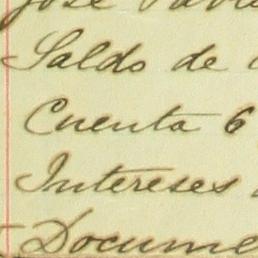 José
Saldo de
Cuenta 6
Intereses
Docume